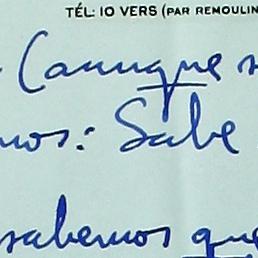 TÉL: 10 VERS (PAR REMOULIN
(aunque s
mos: Sabe
sabemos que